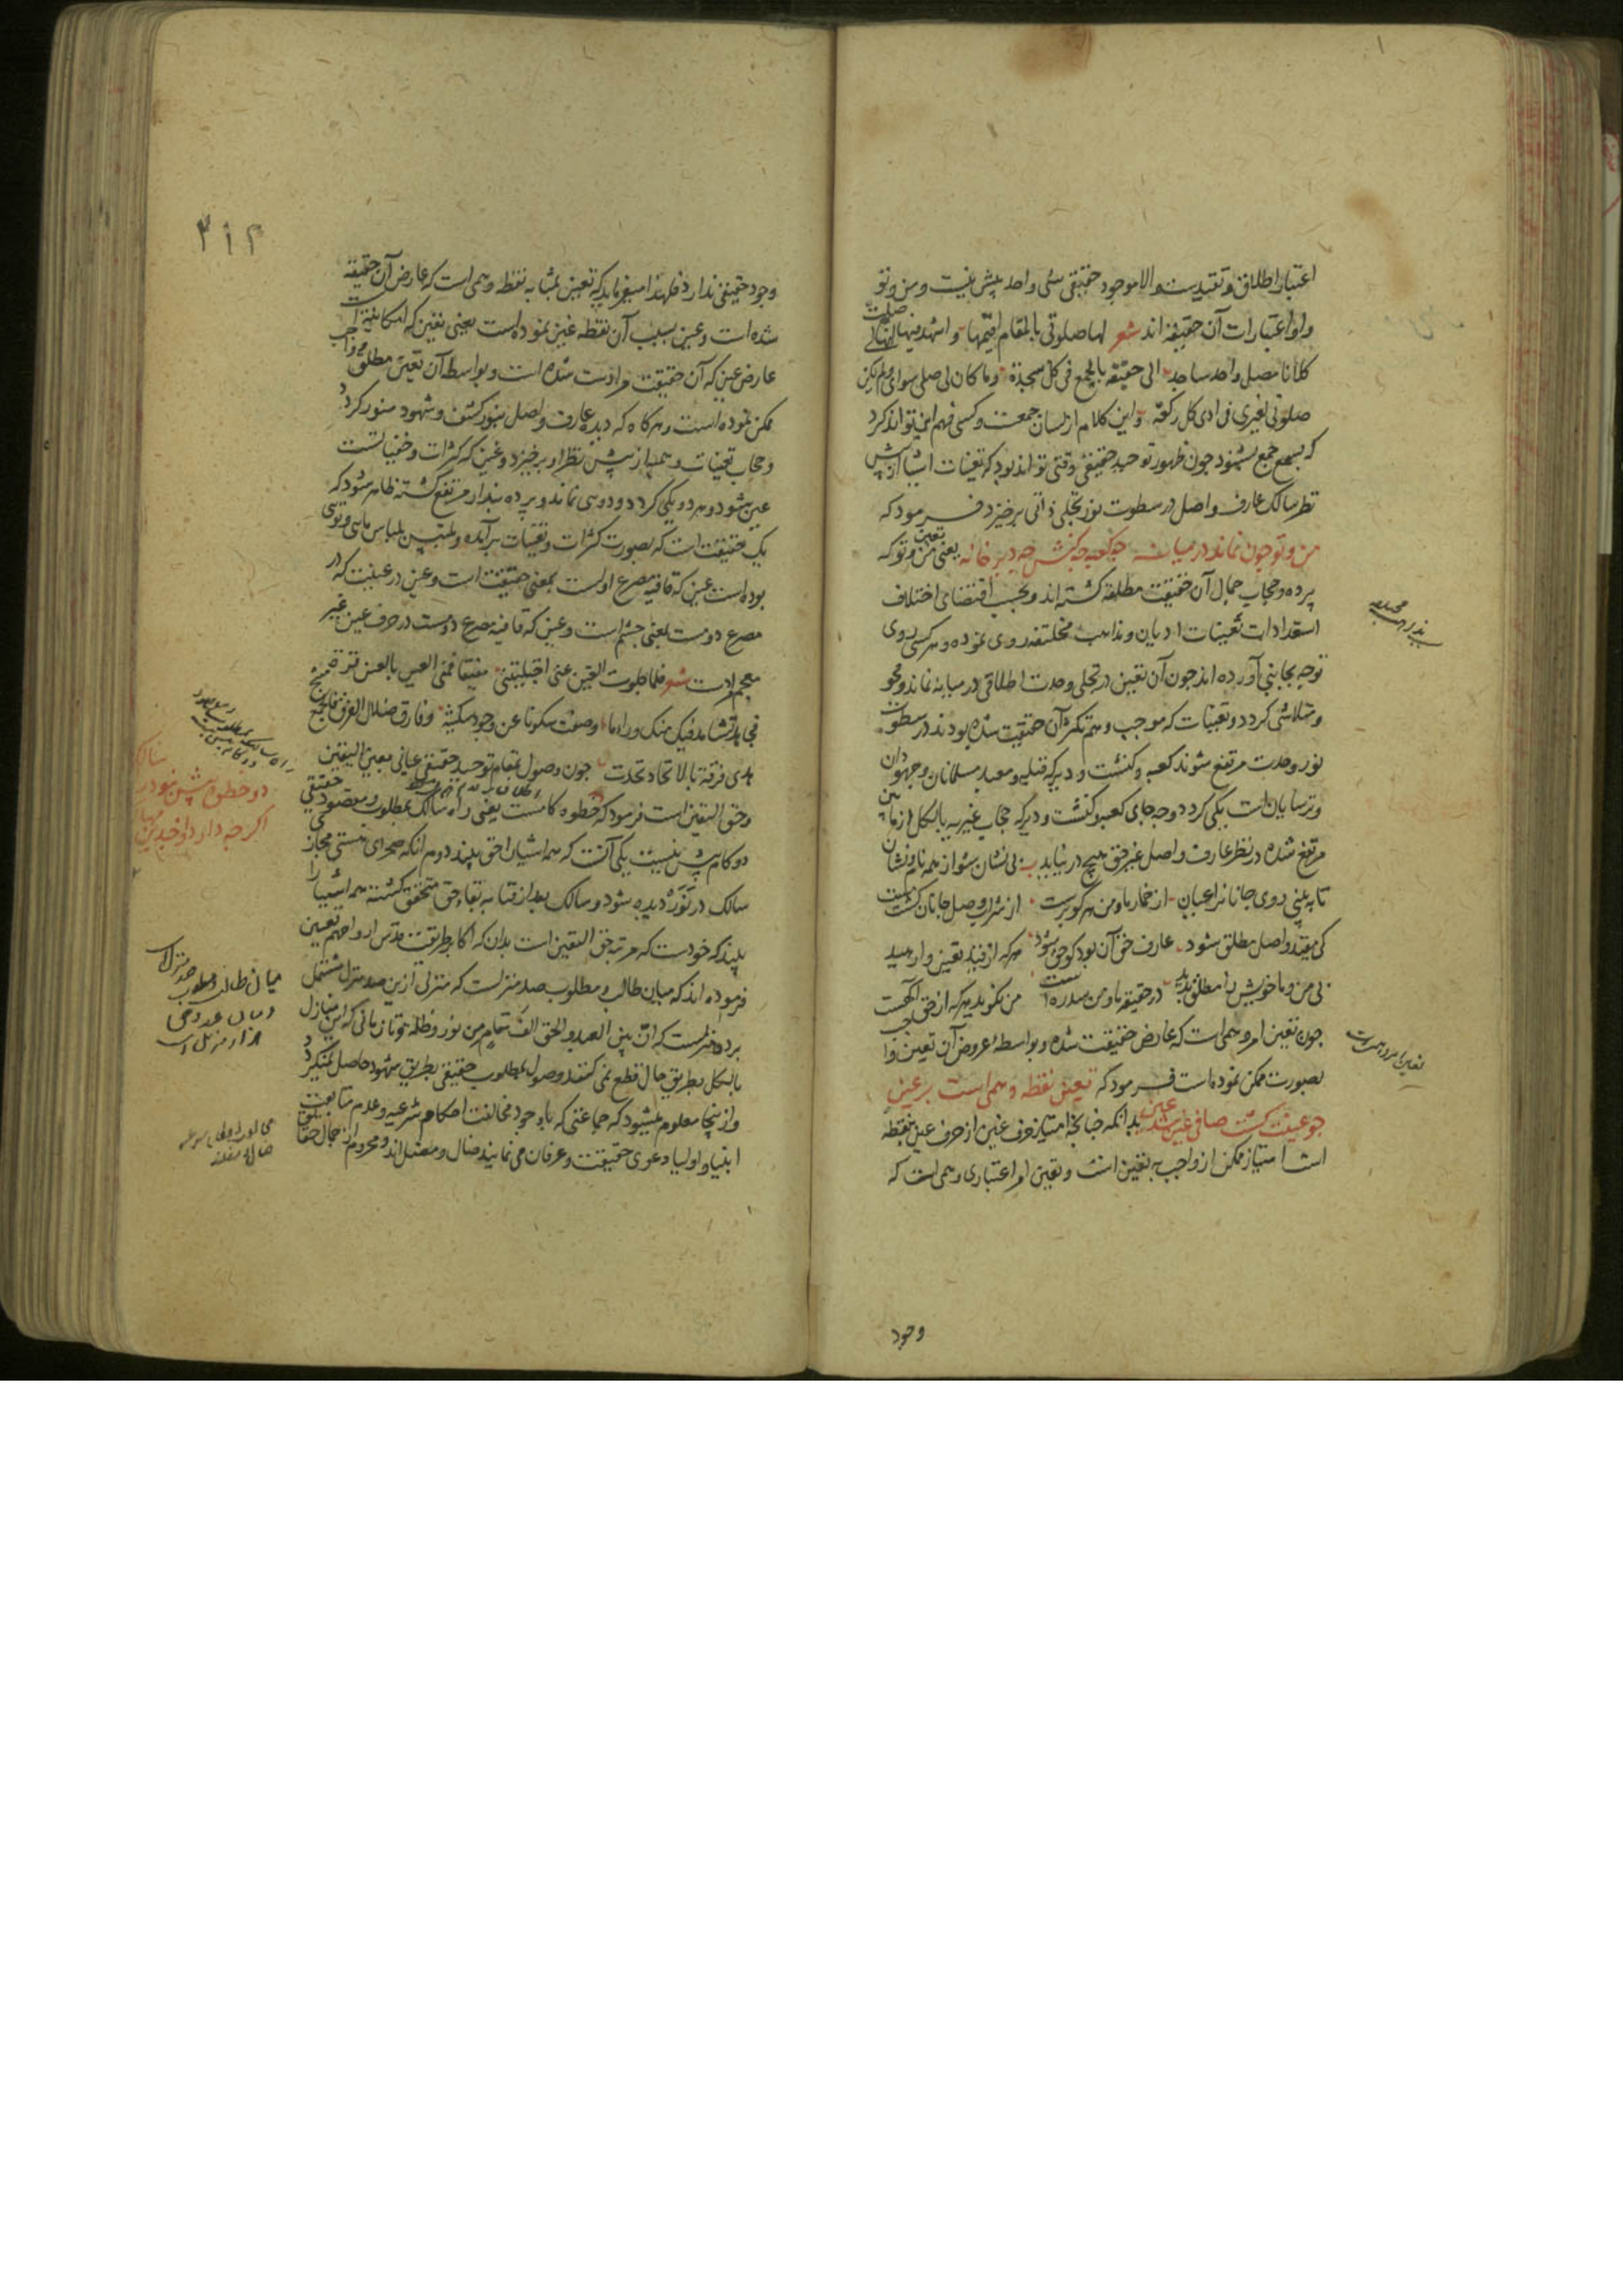 اعتبار اطلاق و تقییدست و الا موجود حقیقی شی واحد پیش نیست و من و تو
و او اعتبارات آن حقیقة اند شعر لها صلوتی بالمقام اقیمها و اشهد فیها انها لی صلت
کلانا مصل واحد ساجد الی حقیقته بالجمع فی کل سجدة وما کان لی صلی سوای ولم یکن
صلوتی لغیری فی ادی کل رکعة و این کلام از لسان جمعست و کسی فهم این تواند کرد
که بسمع جمع بشنود چون ظهور توحید حقیقی وقتی تواند بود که تعینات اشیا از پیش
نظر سالک عارف واصل در سطوت نور تجلی ذاتی برخیزد فرمود که
من و تو چون نماند در میانه چه کعبه چه کنش چه دیر خانه یعنی تعین من و تو که
پرده و حجاب جمال آن حقیقت مطلقه گشته اند و بحسب اقتضای اختلاف
استعدادات تعینات ادیان و مذاهب مختلفه روی نموده و هر کسی روی
توجه بجانبی آورده اند چون آن تعین در تجلی وحدت اطلاقی در میانه نماند و محو
و متلاشی گردد و تعینات که موجب وهم تکثر آن حقیقت شده بودند در سطوت
نور وحدت مرتفع شوند کعبه و کنشت و دیر که قبله و معبد مسلمانان و جهودان
و ترسایان است یکی گردد و چه جای کعبه و کنشت و دیر که حجاب غیریه بالکل از میان
مرتفع شده در نظر عارف واصل غیر حق هیچ در نیاید بی نشان شو از همه نام و نشان
تا ببینی روی جانانرا عیان از خمار ما و من هر کو برست از شراب وصل جانان گشت مست
کی مقید واصل مطلق شود عارف حق آن بود کو حق شود هر که از قید تعین وارهید
بی من و ما خویش را مطلق بدید در حقیقة ما و من سد رهست من نگوید هر که از حق آگهست
چون تعین امر وهمی است که عارض حقیقت شده و بواسطه عروض آن تعین واجب
بصورت ممکن نموده است فرمود که تعین نقطه وهمی است بر عین
چو عینت گشت صافی غین شد عین بدانکه چنانچه امتیاز حرف غین از حرف عین بنقطه
است امتیاز ممکن از واجب بتعین است و تعین امر اعتباری وهمی است که
وجود
تعین امر وهمیست
۲۱۲
وجود حقیقی ندارد فلهذا میفرماید که تعین بمثابه نقطه وهمی است که عارض آن حقیقة
شده است و عین بسبب آن نقطه غین نموده است یعنی تعین که امکانیة است
عارض عین که آن حقیقت مرادست شده است و بواسطه آن تعین مطلق و واجب
ممکن نموده است و هر گاه که دیده عارف واصل بنور کشف و شهود منور گردد
و حجاب تعینات وهمیه از پیش نظر او برخیزد و غین که کثرات و خفیاتست
عین میشود و هر دو یکی گردد و دوی نماند و پرده پندار مرتفع گشته ظاهر شود که
یک حقیقت است که بصورت کثرات و تعینات برآمده و متلبس بلباس مایی و تویی
بوده است عین که قافیه مصرع اولست بمعنی حقیقت است و عین در عینیت که در
مصرع دومست بمعنی چشم است و عین که قافیه مصرع دومست در حرف عین غیر
معجم مرادست شعر فلما جلوت الغین عنی اجتلیتنی مفیقا فمنی العین بالعین قرت
فی هی فرقة بالاتحاد تحدت چون وصول بمقام توحید حقیقی عیانی بعین الیقین
و حق الیقین است فرمود که خطوه کامست یعنی راه سالک بمطلوب و مقصود حقیقی
دو گام پیش نیست یکی آنست که همه اشیا را حق بیند دوم آنکه صحرای هستی مجاز
سالک در نوردیده شود و سالک بعد از فنا به بقاء حق متحقق گشته همه اشیا را
بیند که خودست که مرتبه حق الیقین است بدان که اکابر طریقت قدس ارواحهم تعیین
فرموده اند که میان طالب و مطلوب صد منزلست که منزلی ازین صد منزل مشتمل
برده منزلست که ان بین العبد والحق الف مقام من نور و ظلمة و تا زمانی که این منازل
بالکل بطریق حال قطع نمی کنند وصول بمطلوب حقیقی بطریق شهود حاصل نمیگردد
و ازینجا معلوم میشود که جماعتی که با وجود مخالفت احکام شرعیه و عدم متابعت
انبیا و اولیا دعوی حقیقت و عرفان می نمایند ضال و مضل اند و محروم از جمال
دو خطوه پیش نبود راه سالک
اگر چه دارد او چندین
میان طالب و مطلوب صد منزل است
هزار منزل است